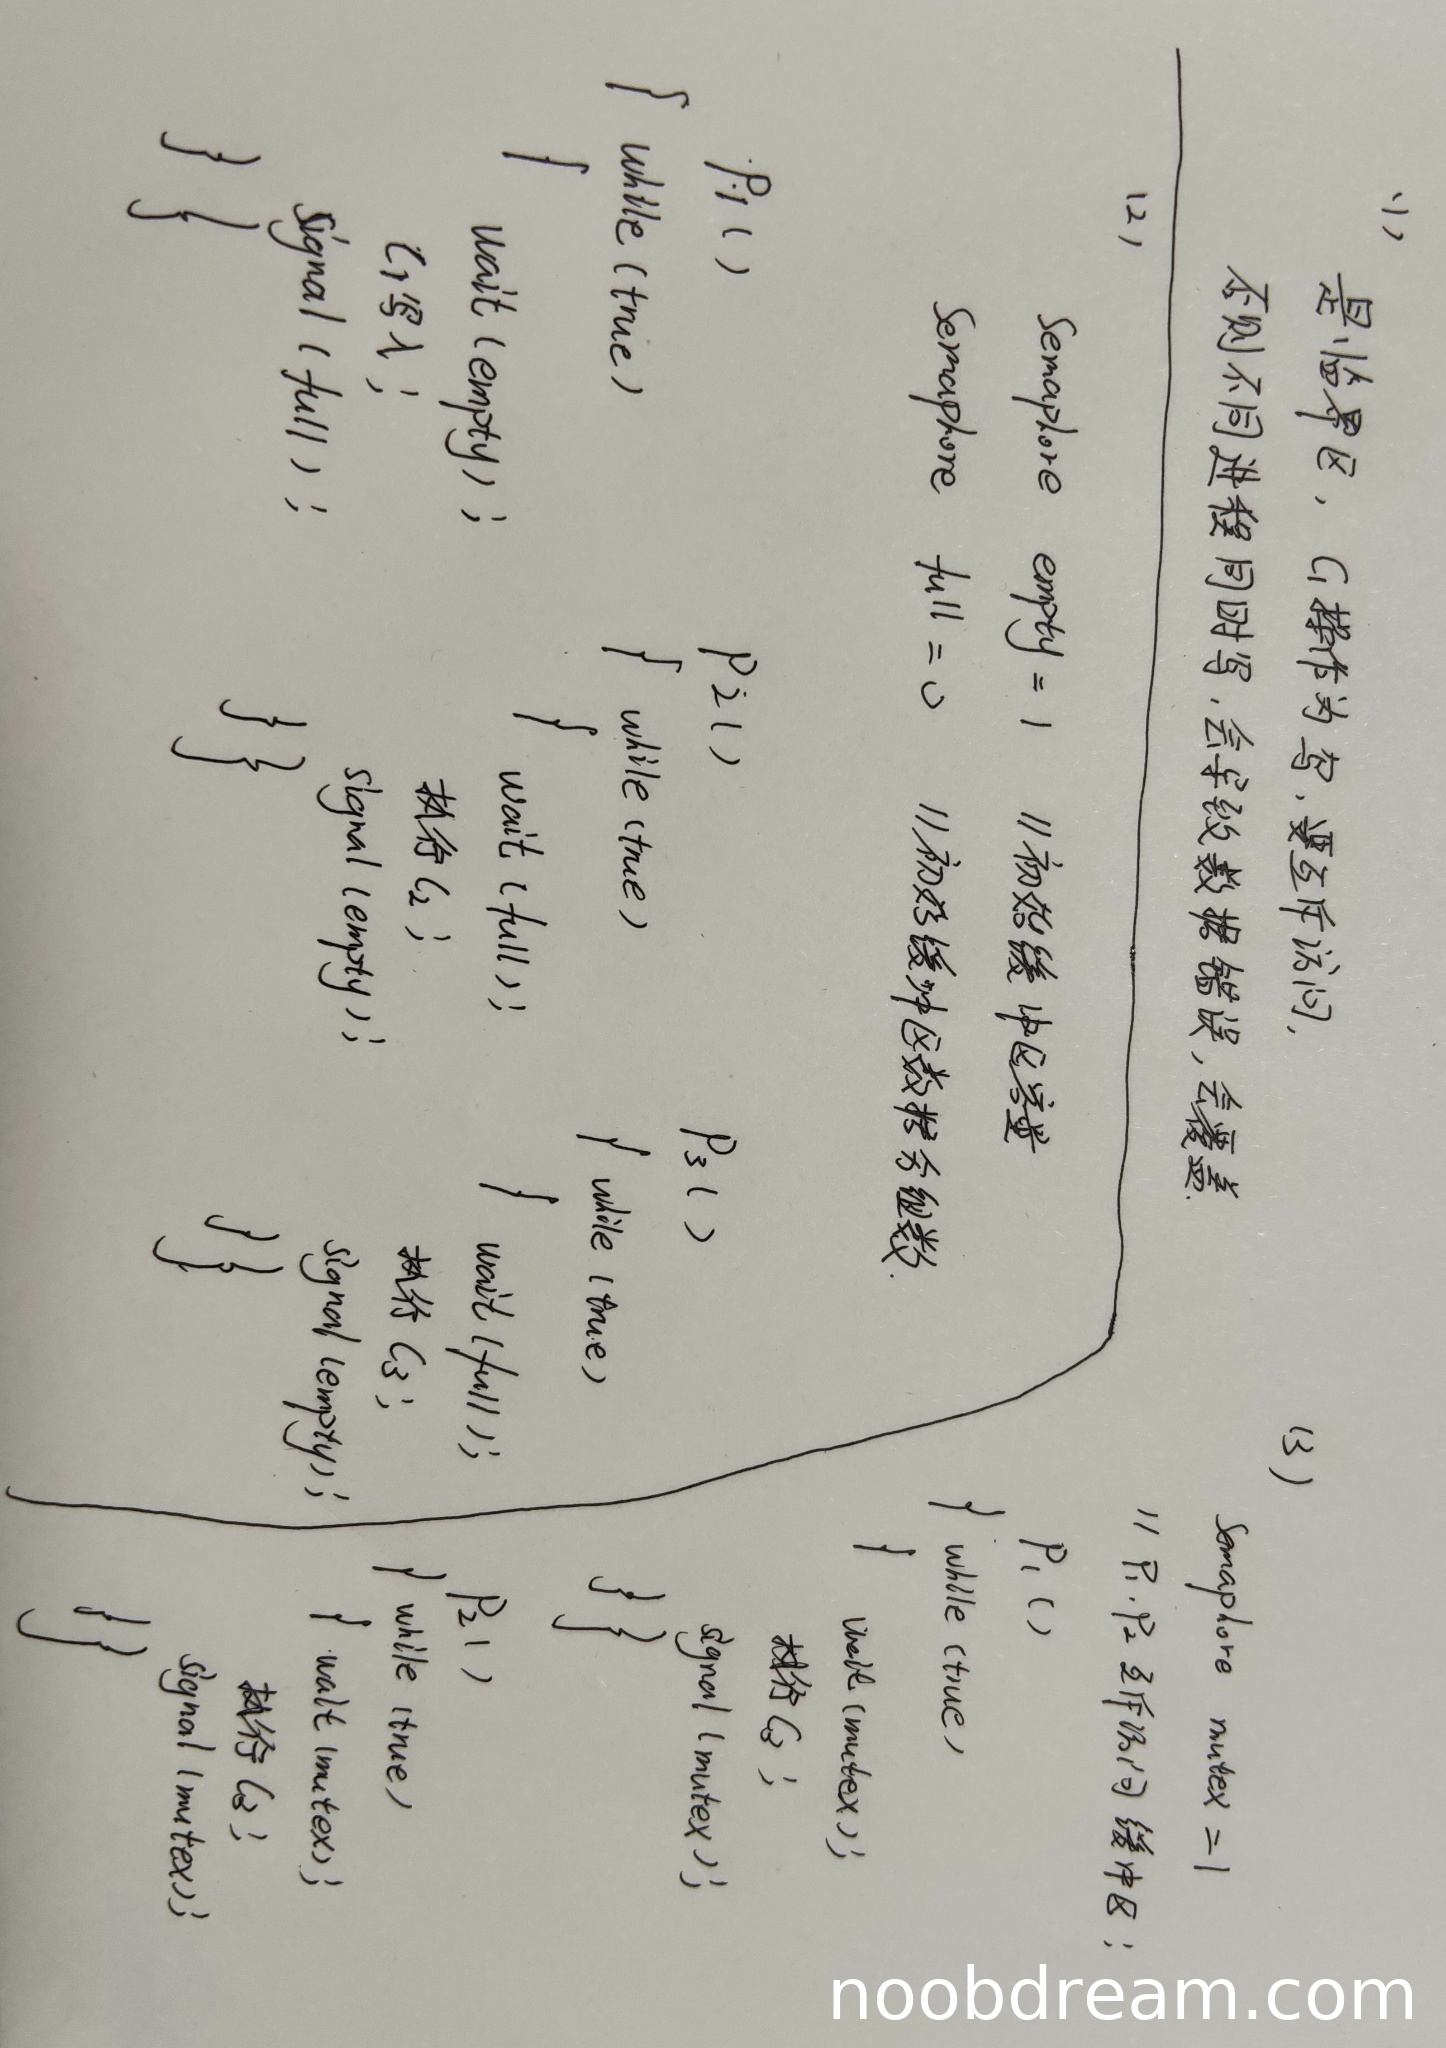 (1)
是临界区, C1操作为写, 要互斥访问,
否则不同进程同时写, 会导致数据错误, 会覆盖.
(2)
Semaphore empty = 1 //初始缓冲区容量
Semaphore full = 0 //初始缓冲区数据分组数.
P1()
{ while(true)
{
wait(empty);
C1写入;
signal(full);
} }
P2()
{ while(true)
{
wait(full);
执行C2;
signal(empty);
} }
P3()
{ while(true)
{
wait(full);
执行C3;
signal(empty);
} }
(3)
Semaphore mutex = 1
// P1.P2互斥访问缓冲区;
P1()
{ while(true)
{
wait(mutex);
执行C3;
signal(mutex);
} }
P2()
{ while(true)
{ wait(mutex);
执行C3;
signal(mutex);
} }
noobdream.com